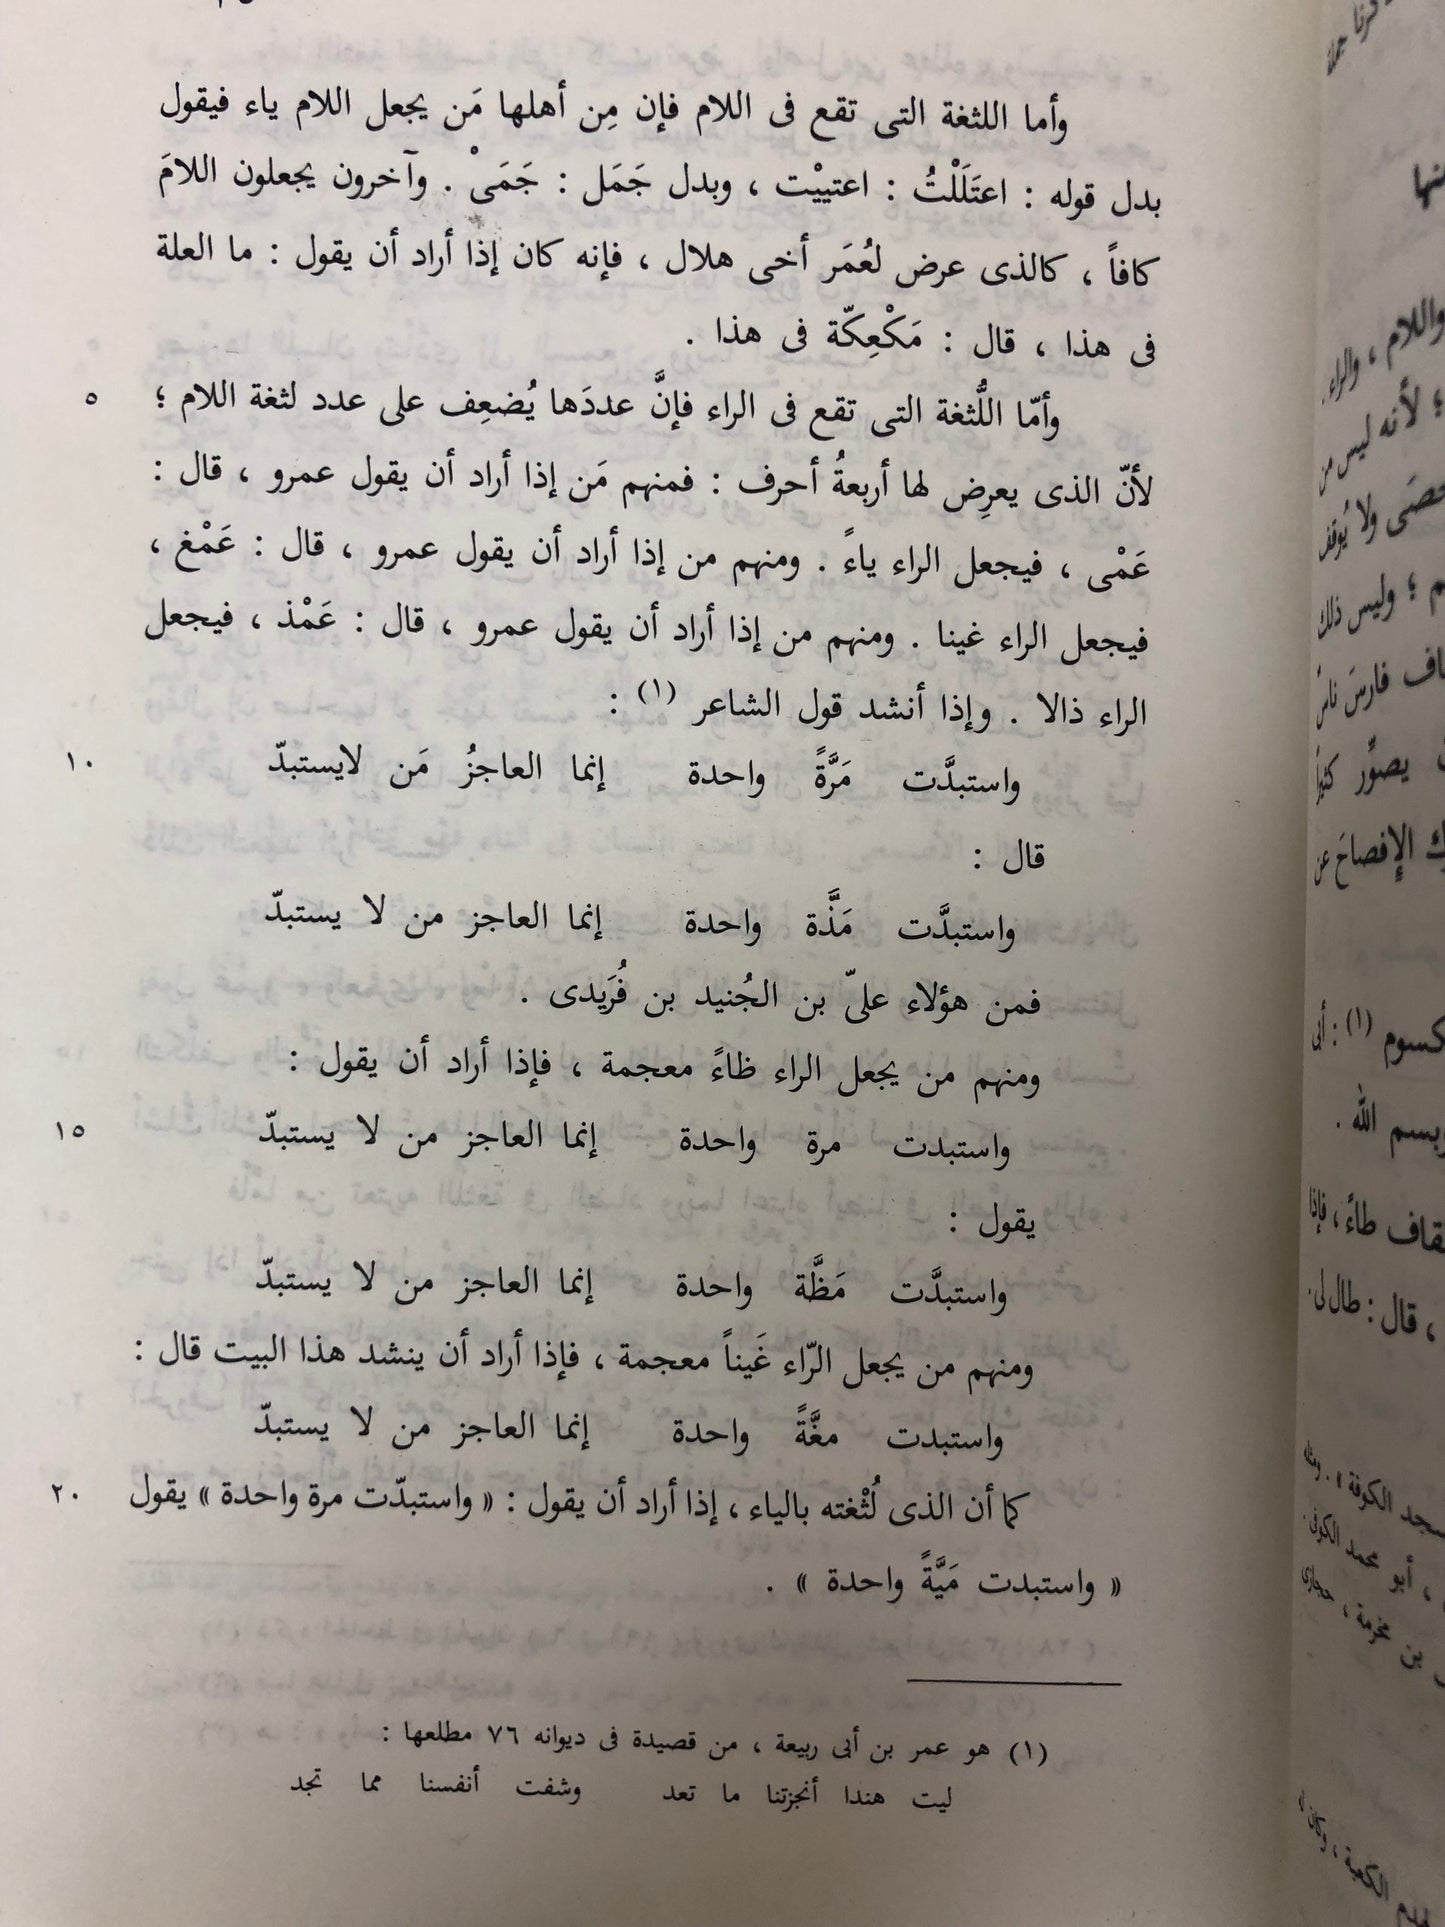 وأما اللثغة التى تقع فى اللام فإن مِن أهلها مَن يجعل اللام ياء فيقول
بدل قوله : اعتَلَلْتُ : اعتييْت ، وبدل جَمَل : جَمَىْ . وآخرون يجعلون اللامَ
كافاً ، كالذى عرض لعُمَر أخى هلال ، فإنه كان إذا أراد أن يقول : ما العلة
فى هذا ، قال : مَكْعِكّة فى هذا .
٥ وأمّا اللُّثغة التى تقع فى الراء فإنَّ عددَها يُضعِف على عدد لثغة اللام ؛
لأنّ الذى يعرِض لها أربعةُ أحرف : فمنهم مَن إذا أراد أن يقول عمرو ، قال :
عَمْى ، فيجعل الراء ياءً . ومنهم من إذا أراد أن يقول عمرو ، قال : عَمْغ ،
فيجعل الراء غينا . ومنهم من إذا أراد أن يقول عمرو ، قال : عَمْذ ، فيجعل
الراء ذالا . وإذا أنشد قول الشاعر (١) :
١٠ واستبدَّت مَرَّةً واحدة إنما العاجزُ مَن لايستبدّ
قال :
واستبدَّت مَذَّة واحدة إنما العاجز من لا يستبدّ
فمن هؤلاء علىّ بن الجُنيد بن فُرَيدى .
ومنهم من يجعل الراء ظاءً معجمة ، فإذا أراد أن يقول :
١٥ واستبدت مرة واحدة إنما العاجز من لا يستبدّ
يقول :
واستبدَّت مَظَّة واحدة إنما العاجز من لا يستبدّ
ومنهم من يجعل الرّاء غَيناً معجمة ، فإذا أراد أن ينشد هذا البيت قال :
واستبدت مغَّةً واحدة إنما العاجز من لا يستبدّ
٢٠ كما أن الذى لُثْغته بالياء ، إذا أراد أن يقول : « واستبدّت مرة واحدة » يقول
« واستبدت مَيَّةً واحدة » .
(١) هو عمر بن أبى ربيعة ، من قصيدة فى ديوانه ٧٦ مطلعها :
ليت هندا أنجزتنا ما تعد وشفت أنفسنا مما تجد
منها
واللام ، والراء .
؛ لأنه ليس من
ولا يُوقف
؛ وليس ذلك
فارسَ ناسٌ
يصوَّر كثيراً
الإفصاحَ عن
(١) : أبى
وبسم الله .
طاءً ، فإذا
، قال : طال لى .
الكوفة » . ومثله
، أبو محمد الكوفى .
بن مخرمة ، حجازى
الكعبة ، وكان